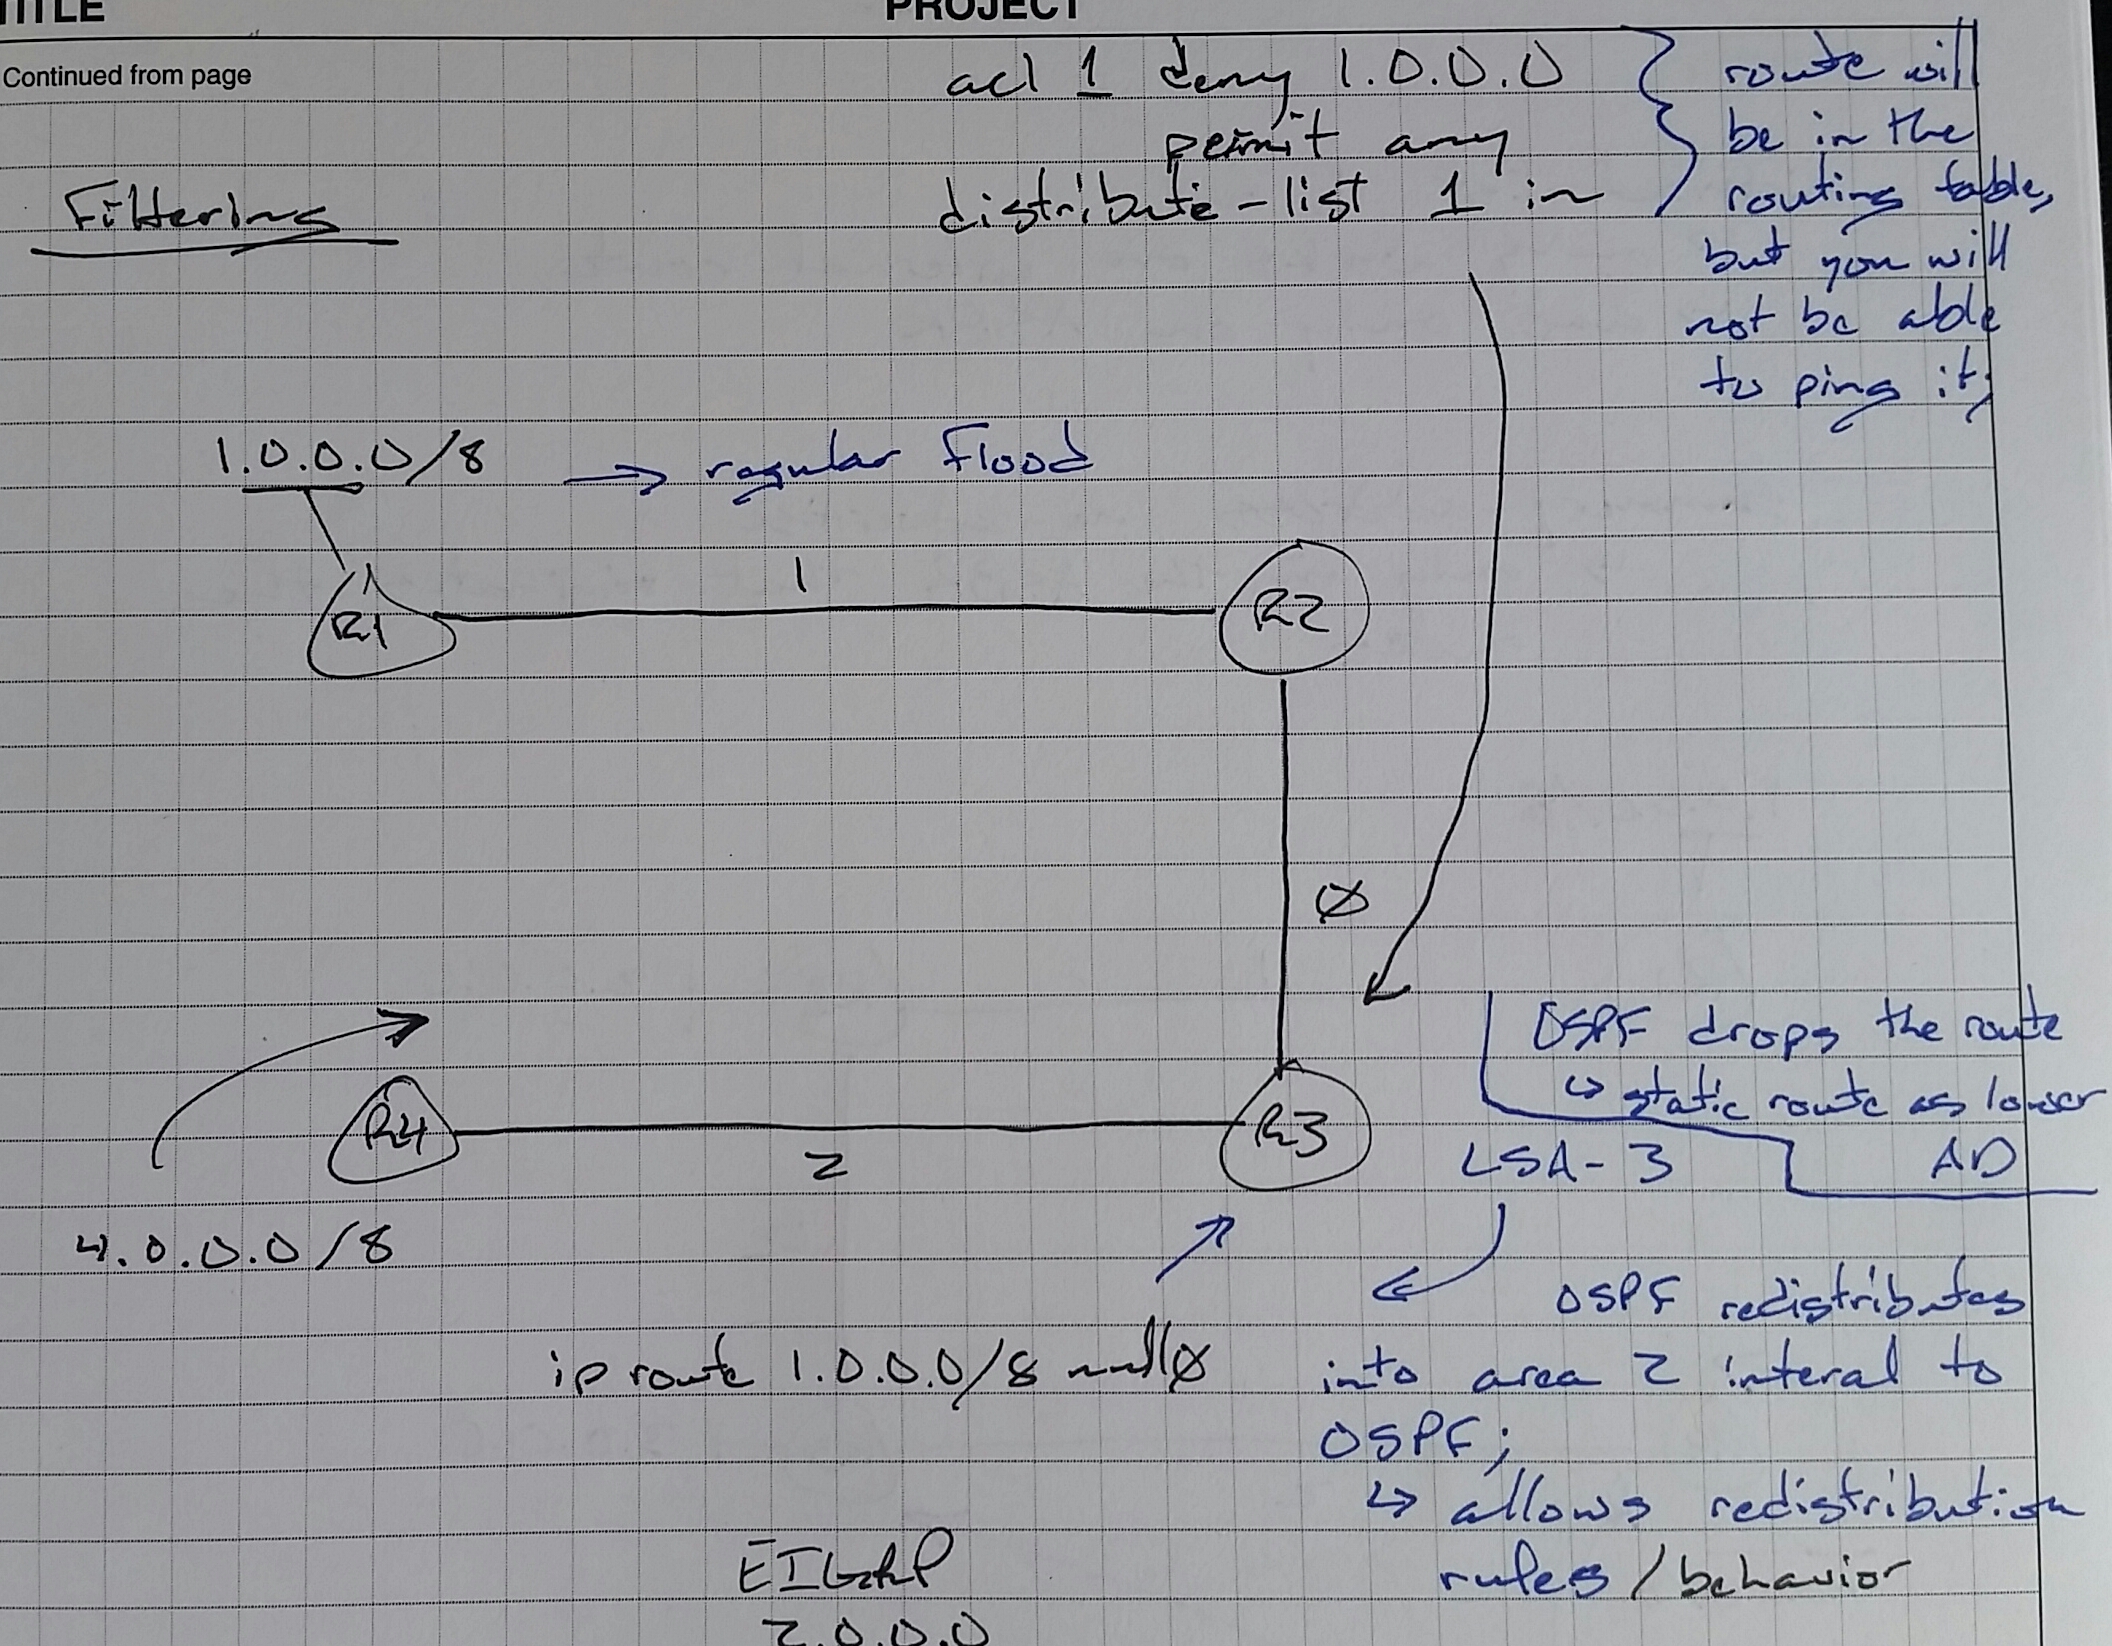 TITLE
PROJECT
Continued from page
Filtering
acl 1 deny 1.0.0.0
permit any
distribute-list 1 in
route will
be in the
routing table,
but you will
not be able
to ping it;
1.0.0.0/8 → regular flood
R1
1
R2
Ø
OSPF drops the route
↳ static route as lower
AD
R4
2
R3
LSA-3
4.0.0.0/8
ip route 1.0.0.0/8 nullØ
OSPF redistributes
into area 2 interal to
OSPF;
↳ allows redistribution
rules/behavior
EIGRP
2.0.0.0